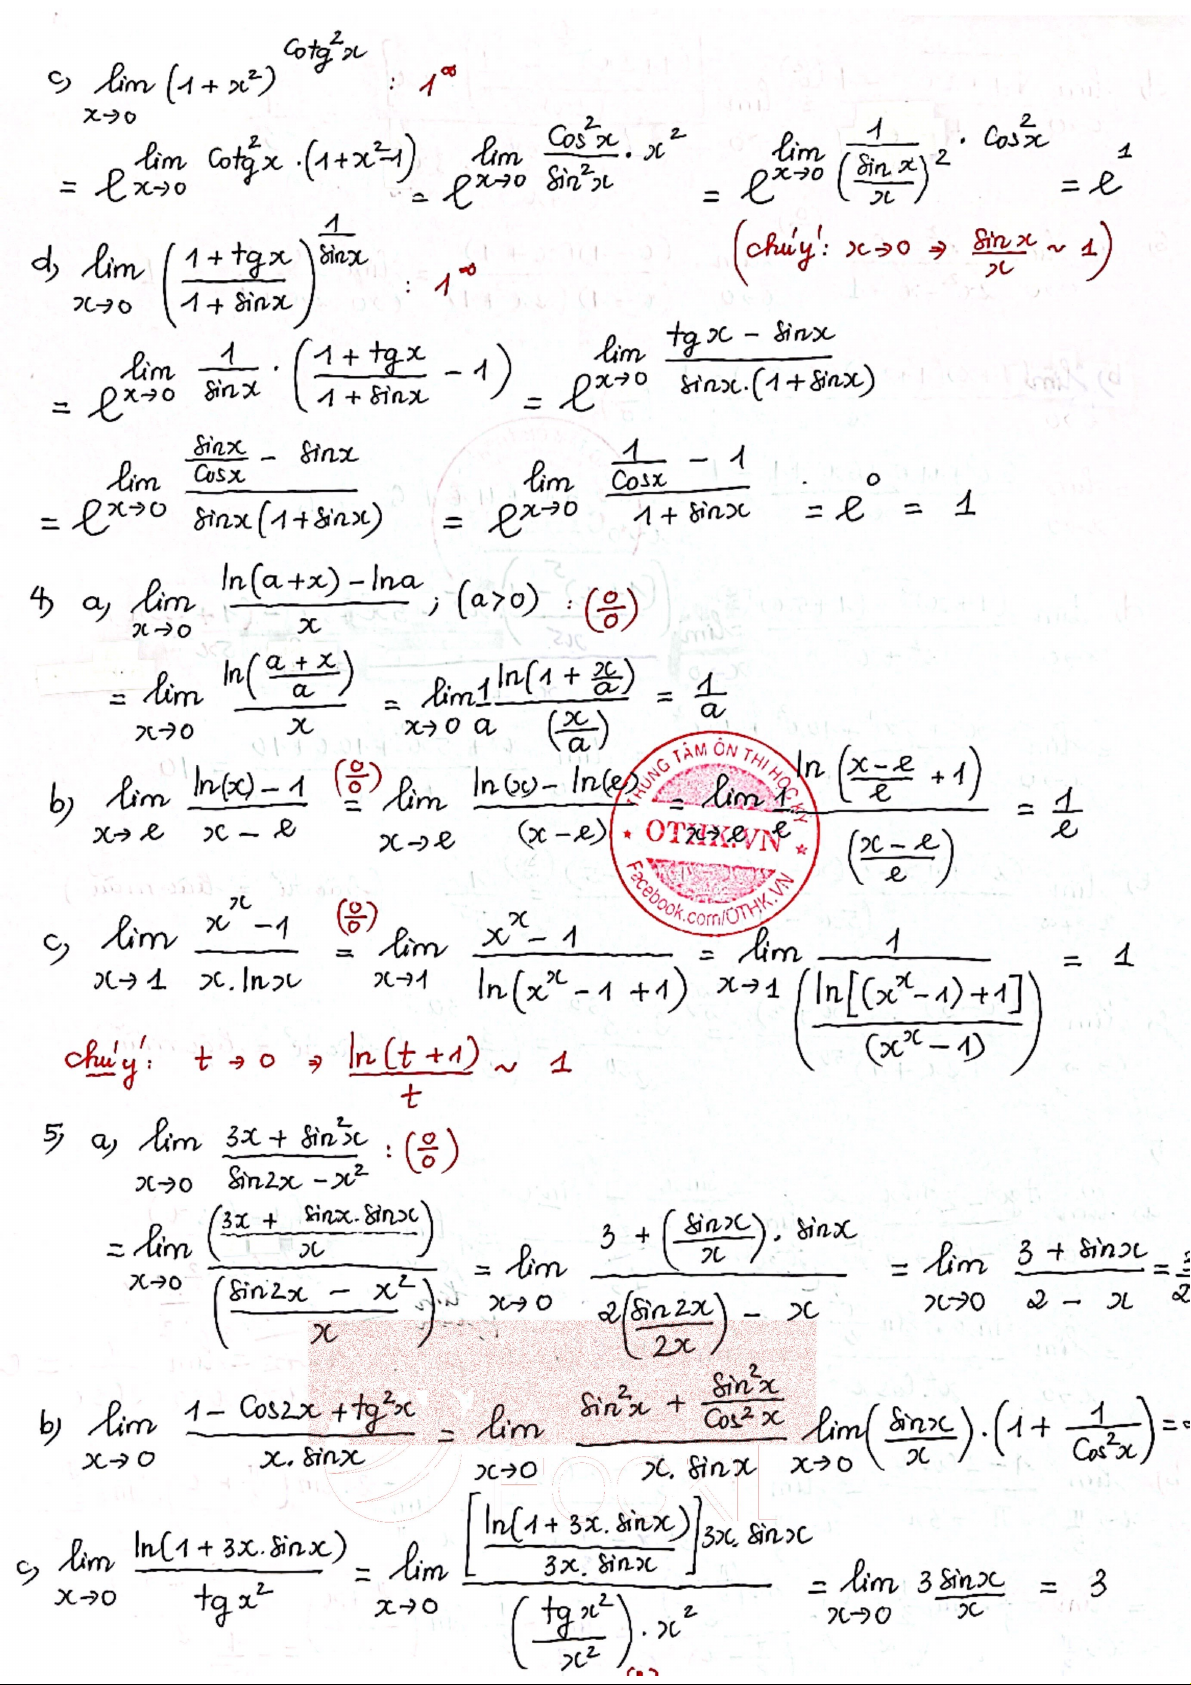 c) lim x→0 (1 + x²)^(Cotg²x) : 1^∞
= e^(lim x→0 Cotg²x . (1+x²-1)) = e^(lim x→0 Cos²x/sin²x . x²) = e^(lim x→0 1/(sin x/x)² . Cos²x) = e^1
(chú ý: x→0 ⇒ sin x/x ~ 1)
d) lim x→0 ((1 + tg x)/(1 + sin x))^(1/sin x) : 1^∞
= e^(lim x→0 1/sin x . ((1 + tg x)/(1 + sin x) - 1)) = e^(lim x→0 (tg x - sin x)/(sin x.(1 + sin x)))
= e^(lim x→0 (sin x/Cos x - sin x)/(sin x(1 + sin x))) = e^(lim x→0 (1/Cos x - 1)/(1 + sin x)) = e^0 = 1
4) a) lim x→0 (ln(a+x) - ln a)/x ; (a>0) : (0/0)
= lim x→0 ln((a + x)/a)/x = lim x→0 1/a ln(1 + x/a)/(x/a) = 1/a
b) lim x→e (ln(x) - 1)/(x - e) (0/0) = lim x→e (ln(x) - ln(e))/(x - e) = lim x→e 1/e ln((x - e)/e + 1)/((x - e)/e) = 1/e
TRUNG TÂM ÔN THI HỌC KỲ
OTHK.VN
Facebook.com/OTHK.VN
c) lim x→1 (x^x - 1)/(x.ln x) (0/0) = lim x→1 (x^x - 1)/ln(x^x - 1 + 1) = lim x→1 1/(ln[(x^x - 1) + 1]/(x^x - 1)) = 1
chú ý: t → 0 ⇒ ln(t + 1)/t ~ 1
5) a) lim x→0 (3x + sin²x)/(sin2x - x²) : (0/0)
= lim x→0 ((3x + sinx.sinx)/x)/((sin2x - x²)/x) = lim x→0 (3 + (sinx/x).sinx)/(2(sin2x/2x) - x) = lim x→0 (3 + sinx)/(2 - x) = 3/2
b) lim x→0 (1 - Cos2x + tg²x)/(x.sinx) = lim x→0 (sin²x + sin²x/Cos²x)/(x.sinx) lim x→0 (sinx/x).(1 + 1/Cos²x) =
c) lim x→0 ln(1 + 3x.sinx)/tg x² = lim x→0 [ln(1 + 3x.sinx)/3x.sinx]3x.sinx/((tg x²/x²).x²) = lim x→0 3 sinx/x = 3